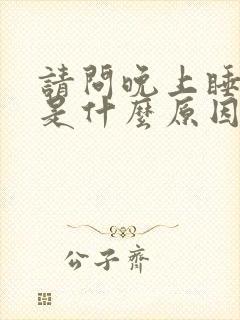 請問晚上睡
是什麼原因
公子齊